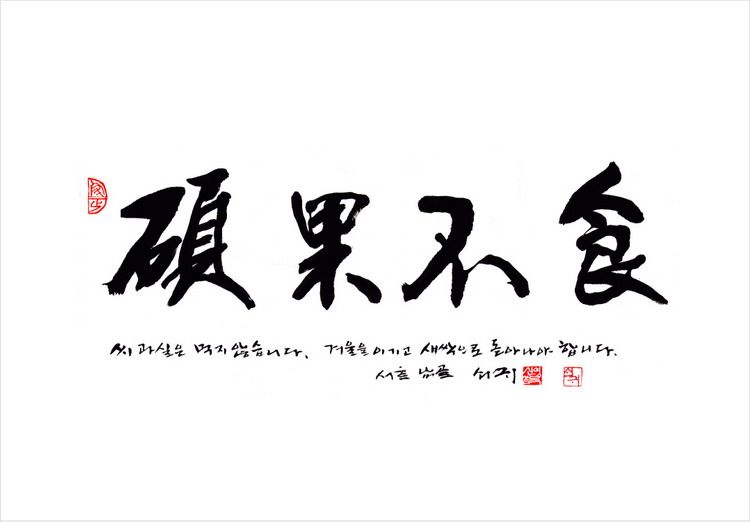 碩果不食
씨 과실은 먹지 않습니다. 겨울을 이기고 새싹으로 돋아나야 합니다.
서흔